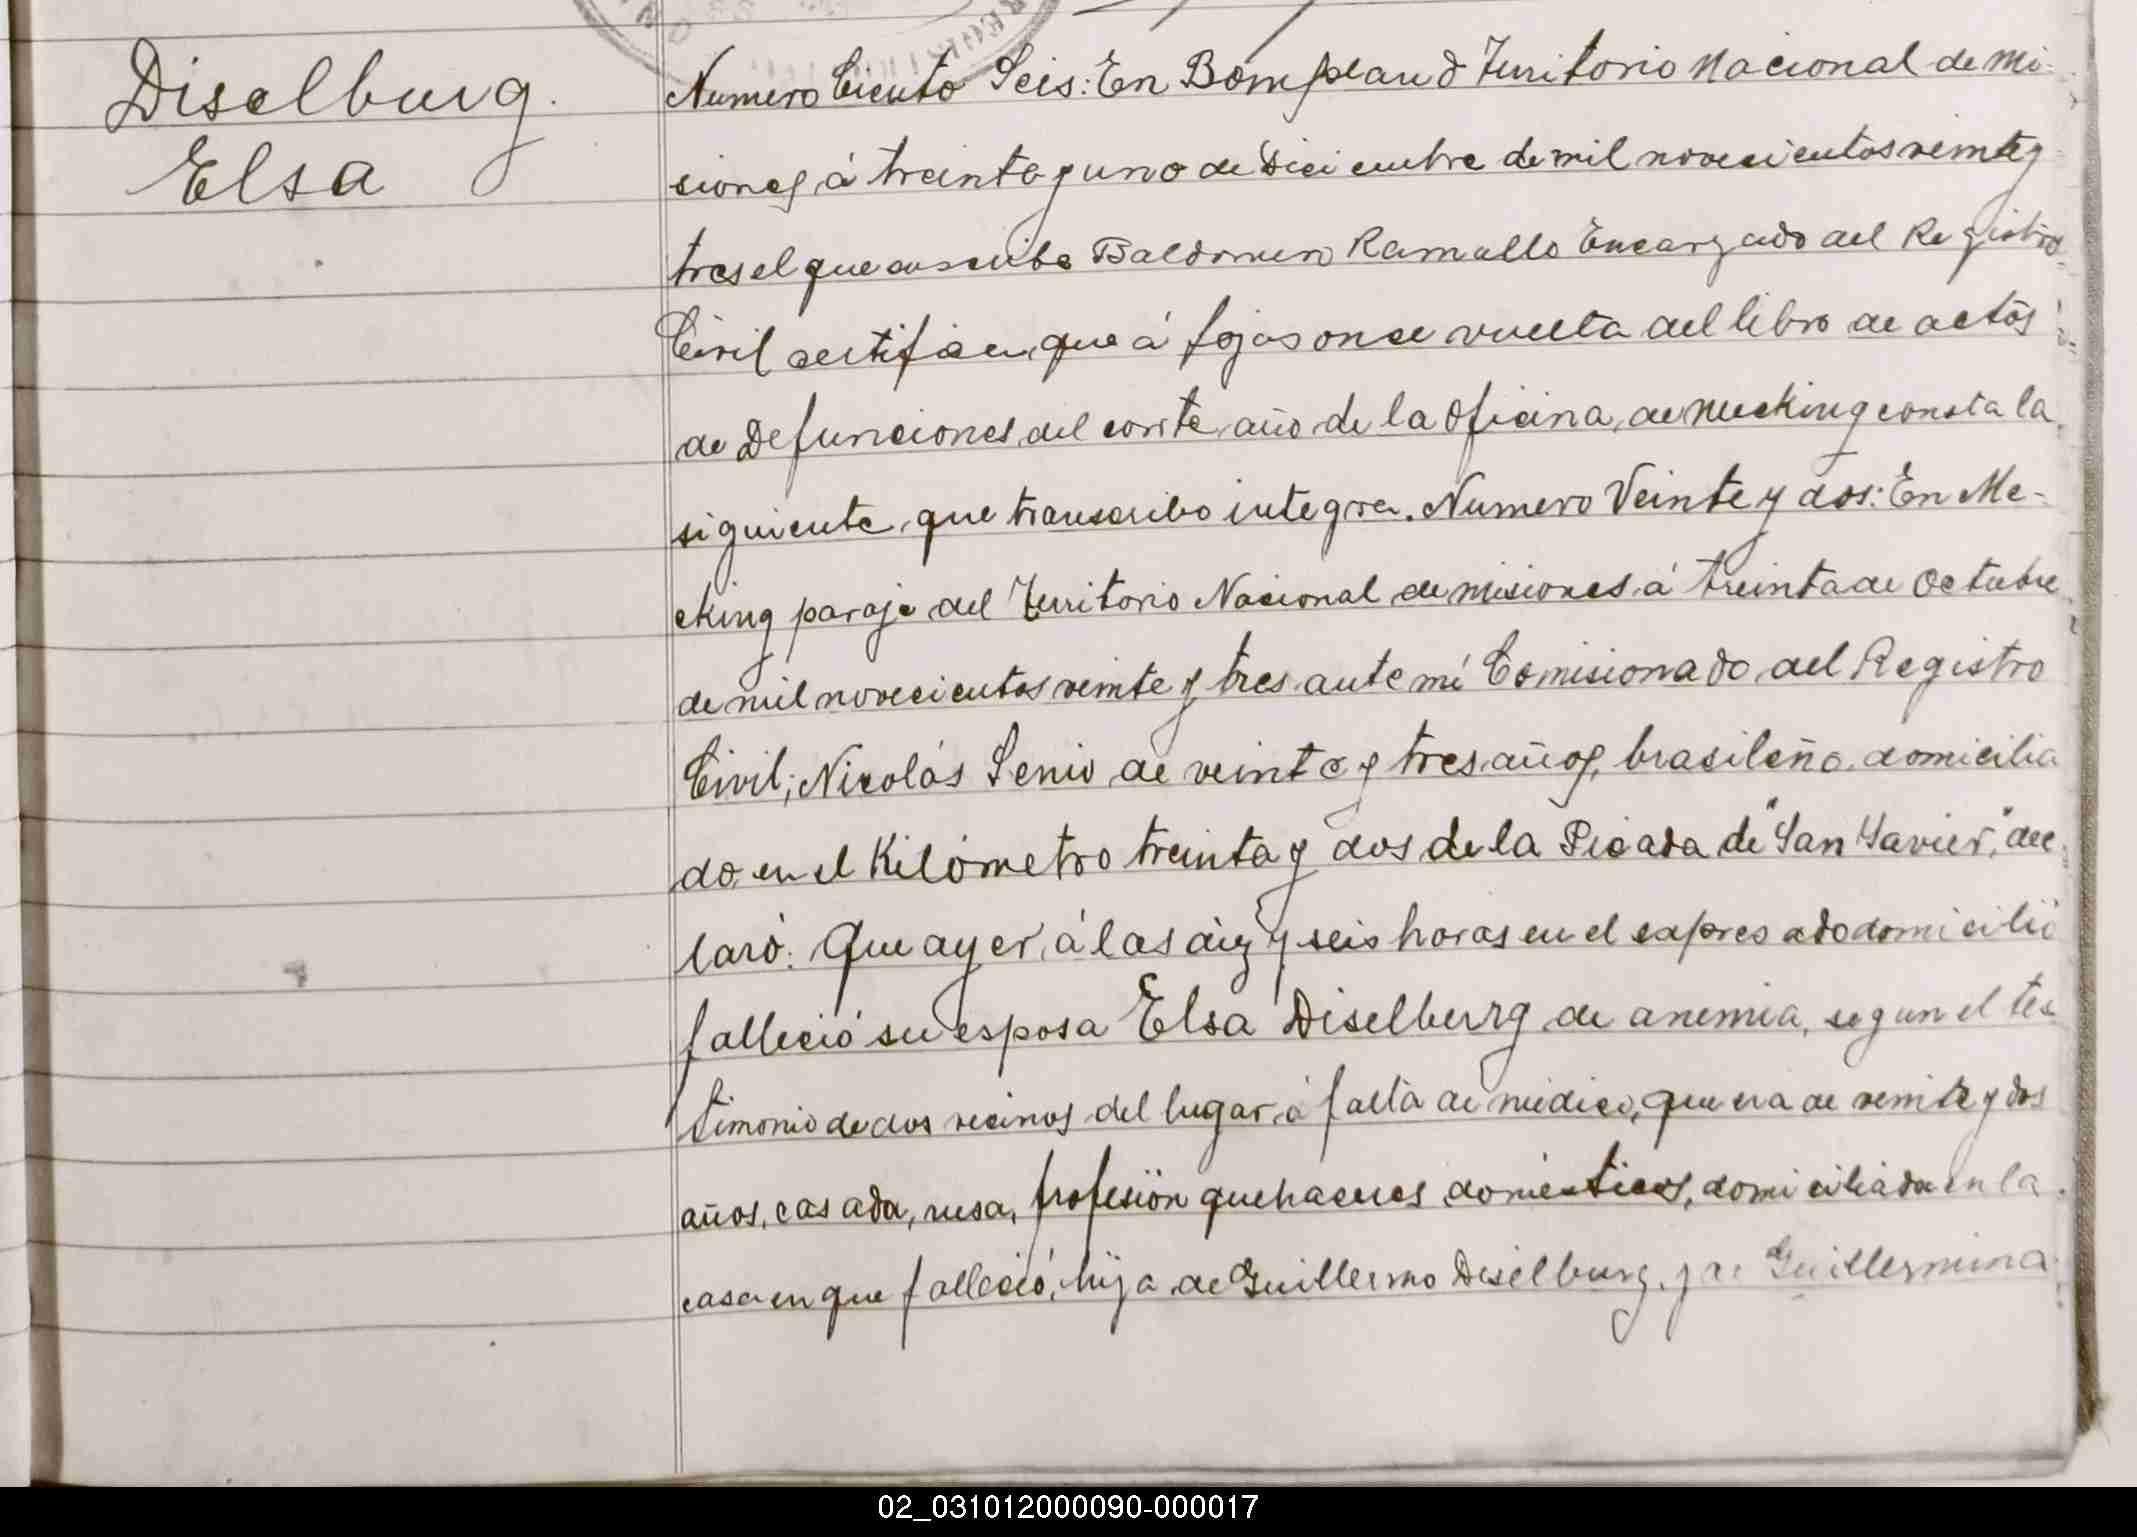 Diselburg.
Elsa
Numero Ciento Seis: En Bompland Territorio Nacional de Mi-
siones, á treinta y uno de Diciembre de mil novecientos veinte y
tres el que suscribe Baldomero Ramallo Encargado del Registro
Civil certifica, que á fojas once vuelta del libro de actas
de Defunciones del corrte. año de la Oficina, de Mecking consta la
siguiente, que transcribo integra. Numero Veinte y dos: En Me-
cking paraje del Territorio Nacional de Misiones, á treinta de Octubre
de mil novecientos veinte y tres, ante mi Comisionado del Registro
Civil; Nicolás Seniv de veinte y tres años, brasileño, domicilia
do, en el Kilómetro treinta y dos de la Picada de "San Javier," dec
laró: Que ayer, á las diez y seis horas en el expresado domicilio
falleció su esposa Elsa Diselburg de anemia, segun el tes
timonio de dos vecinos del lugar, á falta de médico, que era de veinte y dos
años, casada, rusa, profesión quehaceres domésticos, domiciliada en la
casa en que falleció, hija de Guillermo Diselburg, y de Guillermina
02_031012000090-000017